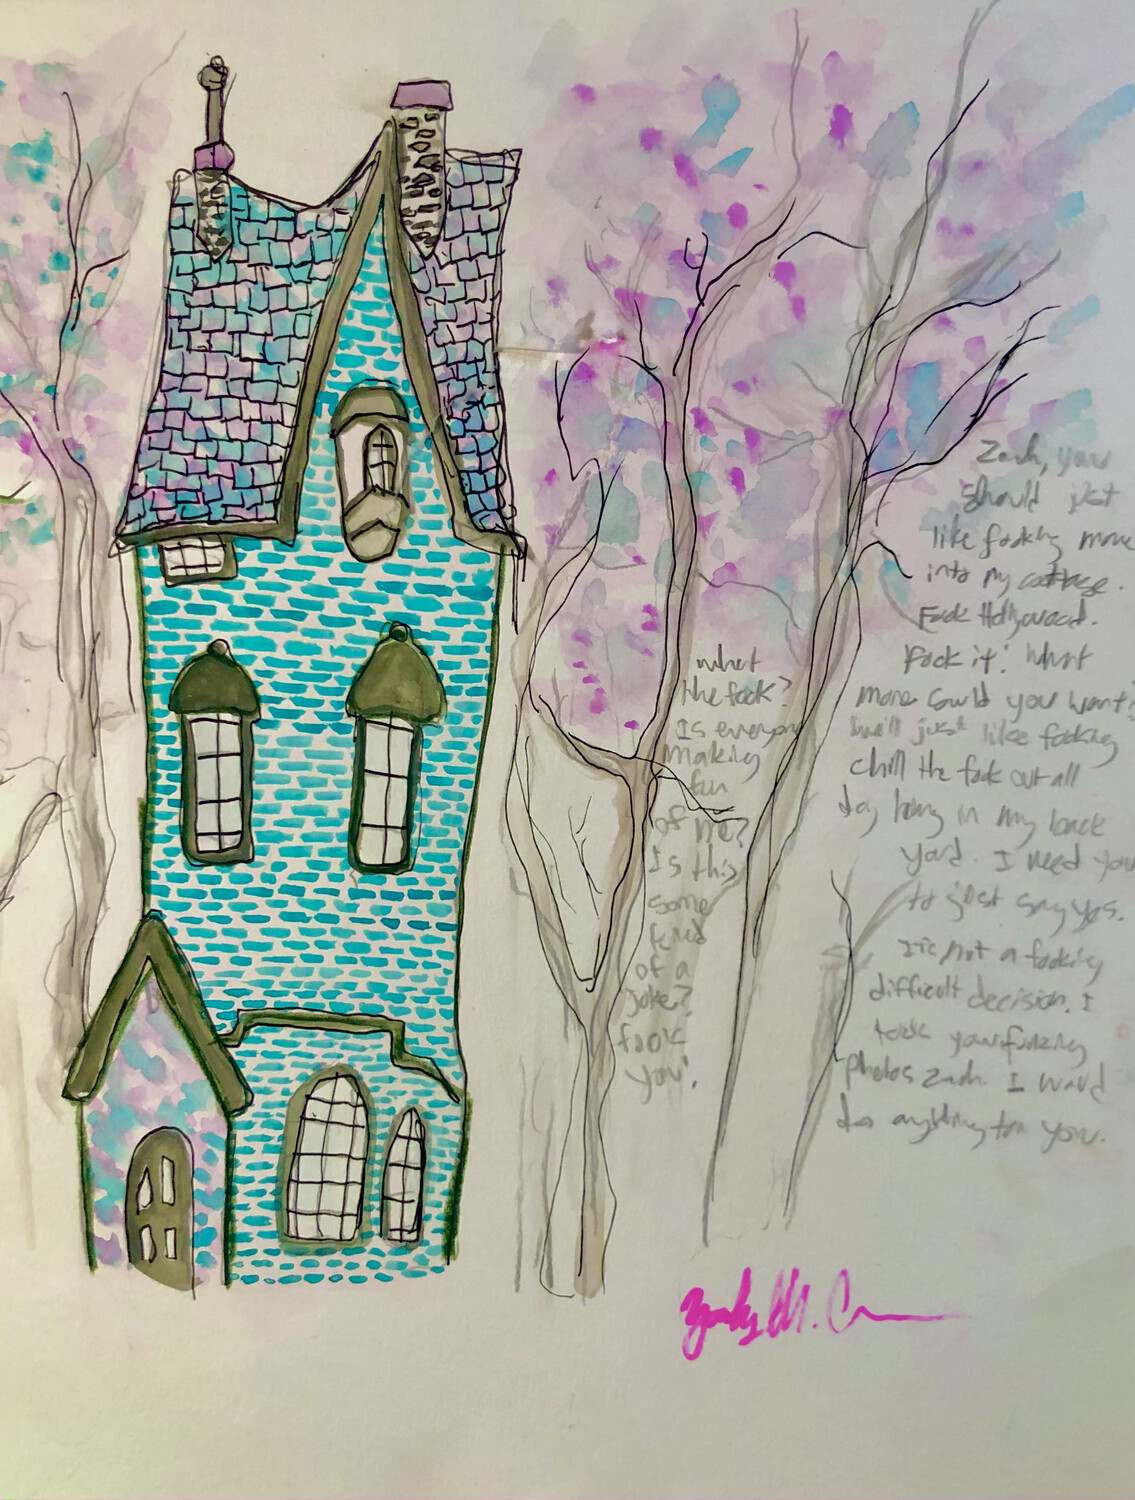 what
the fook?
Is everyone
making
fun
of me?
Is this
some
kind
of a
joke?
fook
you!
Zach, you
should just
like fooking move
into my cottage.
Fook Hollywood.
Fook it! What
more could you want?
We'll just like fooking
chill the fook out all
day long in my back
yard. I need you
to just say yes.
It's not a fooking
difficult decision. I
took your fucking
photos Zach. I would
do anything for you.